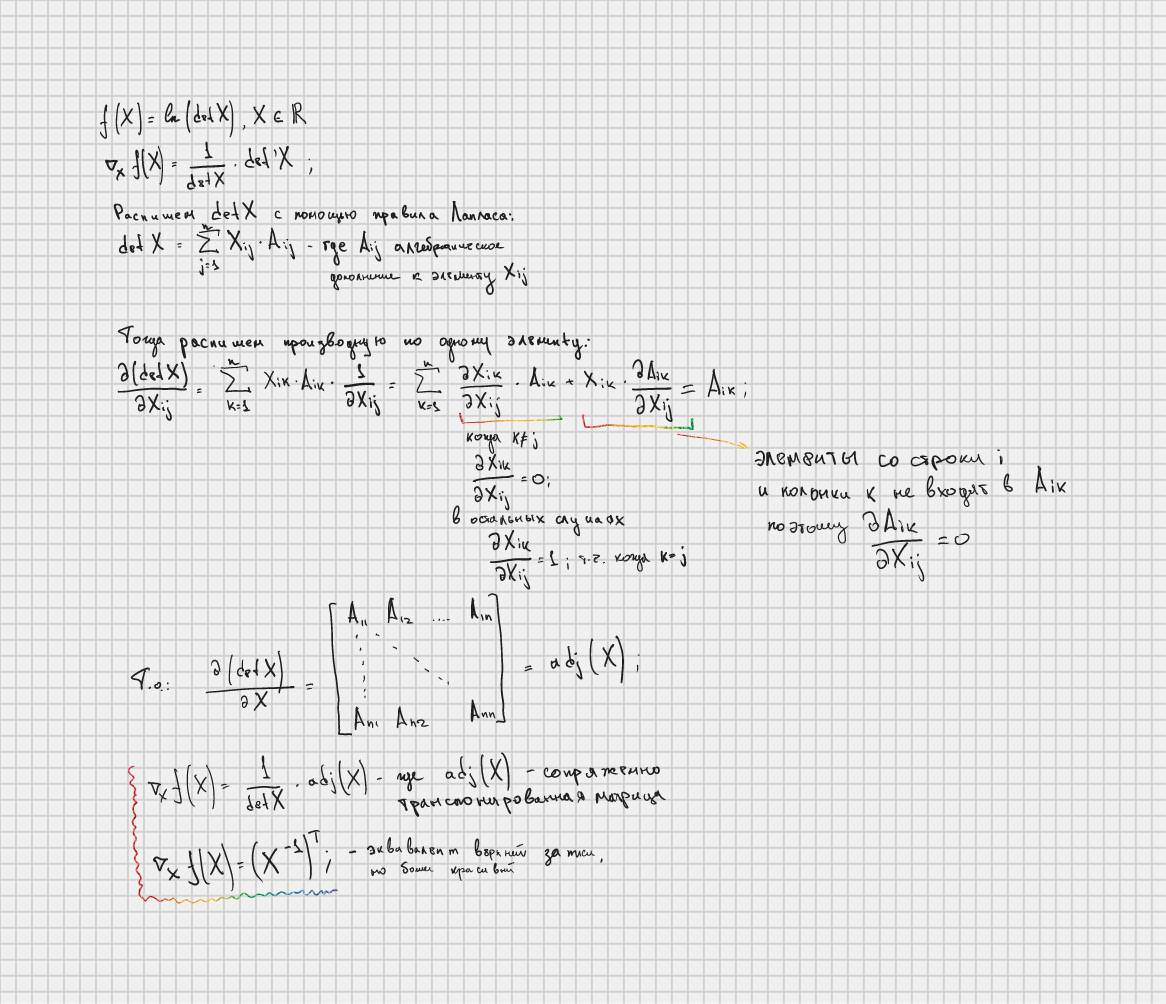 f(X) = ln(det X), X ∈ ℝ
∇ₓ f(X) = 1/(det X) · det'X ;
Распишем det X с помощью правила Лапласа:
det X = ∑_{j=1}^{n} X_{ij} · A_{ij} - где A_{ij} алгебраическое
дополнение к элементу X_{ij}
Тогда распишем производную по одному элементу:
∂(det X)/∂X_{ij} = ∑_{k=1}^{n} X_{ik} · A_{ik} · 1/∂X_{ij} = ∑_{k=1}^{n} ∂X_{ik}/∂X_{ij} · A_{ik} + X_{ik} · ∂A_{ik}/∂X_{ij} = A_{ik} ;
когда k≠j
∂X_{ik}/∂X_{ij} = 0;
в остальных случаях
∂X_{ik}/∂X_{ij} = 1 ; т.е. когда k=j
элементы со строки i
и колонки k не входят в A_{ik}
поэтому ∂A_{ik}/∂X_{ij} = 0
Т.о.: ∂(det X)/∂X = [A₁₁ A₁₂ .... A₁ₙ
Aₙ₁ Aₙ₂ Aₙₙ] = adj(X) ;
∇ₓ f(X) = 1/(det X) · adj(X) - где adj(X) - сопряженно
транспонированная матрица
∇ₓ f(X) = (X⁻¹)ᵀ ; - эквивалент верхней записи,
но более красивый